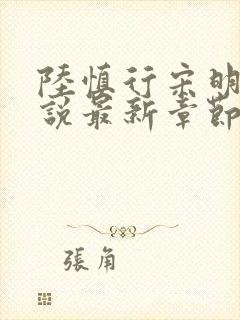 陸慎行宋明
說最新章節
張角